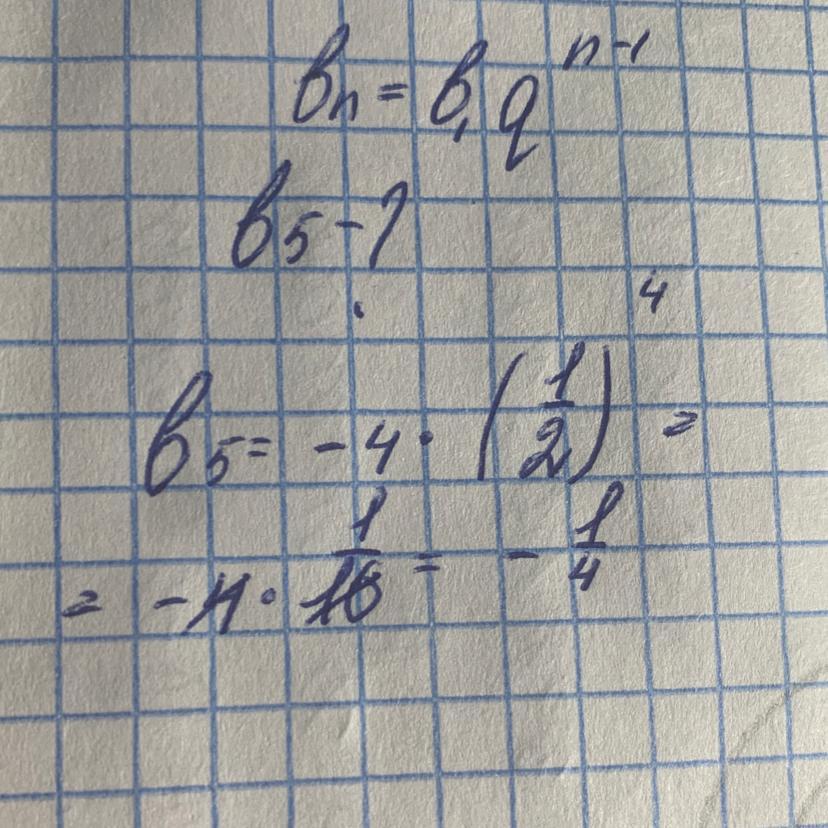 bₙ = b₁qⁿ⁻¹
b₅ - ?
b₅ = -4 · (1/2)⁴ =
= -4 · 1/16 = - 1/4